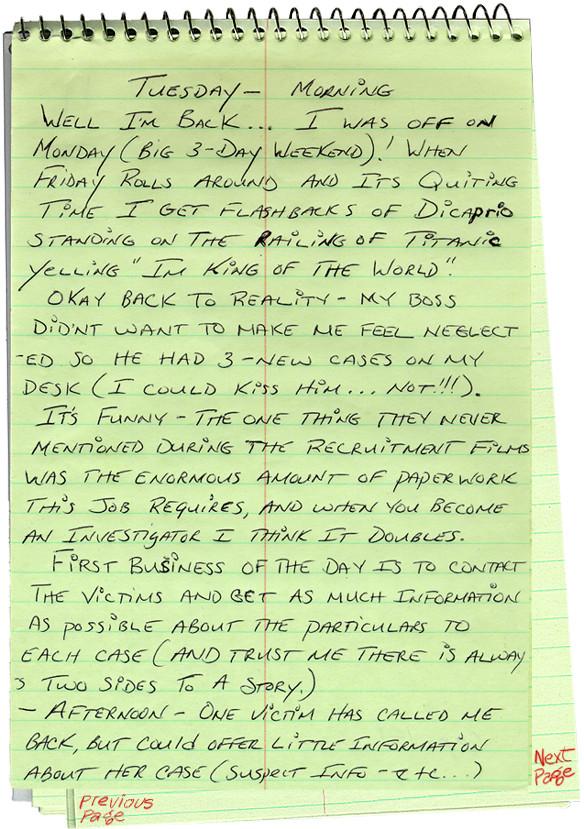 TUESDAY - MORNING
WELL I'M BACK... I WAS OFF ON
MONDAY (BIG 3-DAY WEEKEND)! WHEN
FRIDAY ROLLS AROUND AND ITS QUITING
TIME I GET FLASHBACKS OF DICAPRIO
STANDING ON THE RAILING OF TITANIC
YELLING "IM KING OF THE WORLD".
OKAY BACK TO REALITY - MY BOSS
DID'NT WANT TO MAKE ME FEEL NEGLECT
-ED SO HE HAD 3-NEW CASES ON MY
DESK (I COULD KISS HIM... NOT!!!).
IT'S FUNNY - THE ONE THING THEY NEVER
MENTIONED DURING THE RECRUITMENT FILMS
WAS THE ENORMOUS AMOUNT OF PAPERWORK
THIS JOB REQUIRES, AND WHEN YOU BECOME
AN INVESTIGATOR I THINK IT DOUBLES.
FIRST BUSINESS OF THE DAY IS TO CONTACT
THE VICTIMS AND GET AS MUCH INFORMATION
AS POSSIBLE ABOUT THE PARTICULARS TO
EACH CASE (AND TRUST ME THERE IS ALWAY
S TWO SIDES TO A STORY.)
- AFTERNOON - ONE VICTIM HAS CALLED ME
BACK, BUT COULD OFFER LITTLE INFORMATION
ABOUT HER CASE (SUSPECT INFO - etc...)
Next
Page
Previous
Page